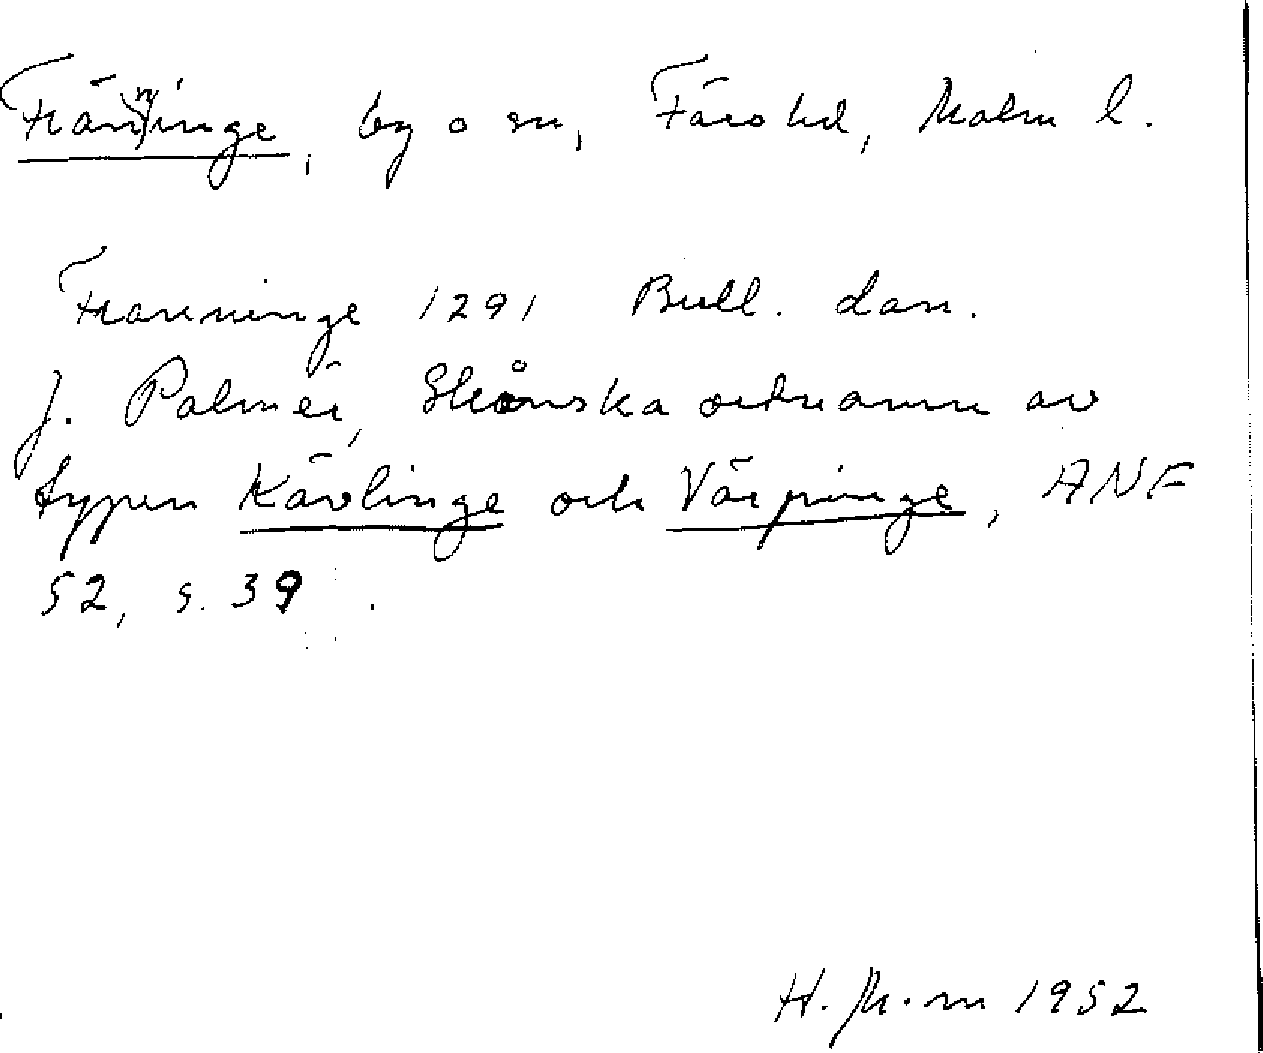 Fränninge, by o sn, Färs hd, Malm l.
Franninge 1291 Bull. dan.
J. Palmér, Skånska ortnamn av
typen Kävlinge och Värpinge, ANF
52, s. 39.
H. M-m 1952